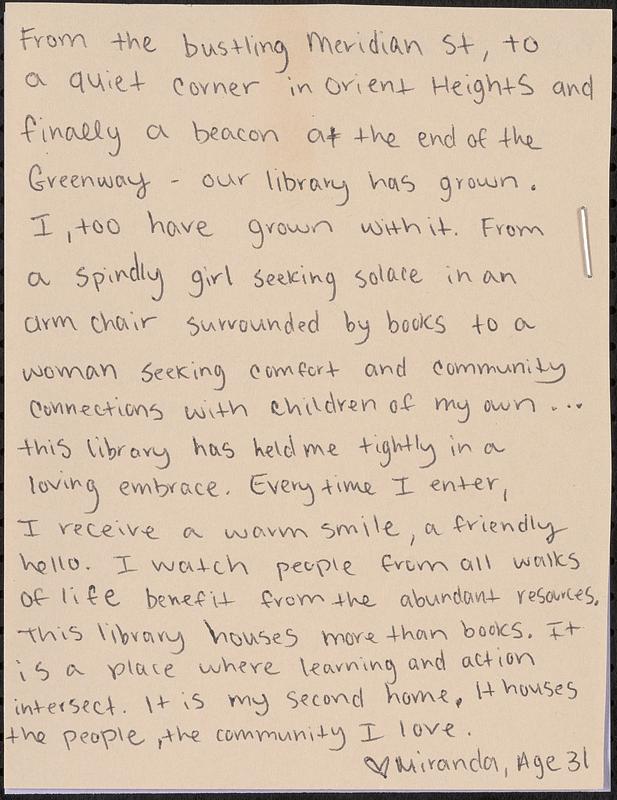 From the bustling Meridian St, to
a quiet corner in Orient Heights and
finally a beacon at the end of the
Greenway - our library has grown.
I, too have grown with it. From
a spindly girl seeking solace in an
arm chair surrounded by books to a
woman seeking comfort and community
connections with children of my own ...
this library has held me tightly in a
loving embrace. Every time I enter,
I receive a warm smile, a friendly
hello. I watch people from all walks
of life benefit from the abundant resources.
This library houses more than books. It
is a place where learning and action
intersect. It is my second home. It houses
the people, the community I love.
♡ Miranda, Age 31